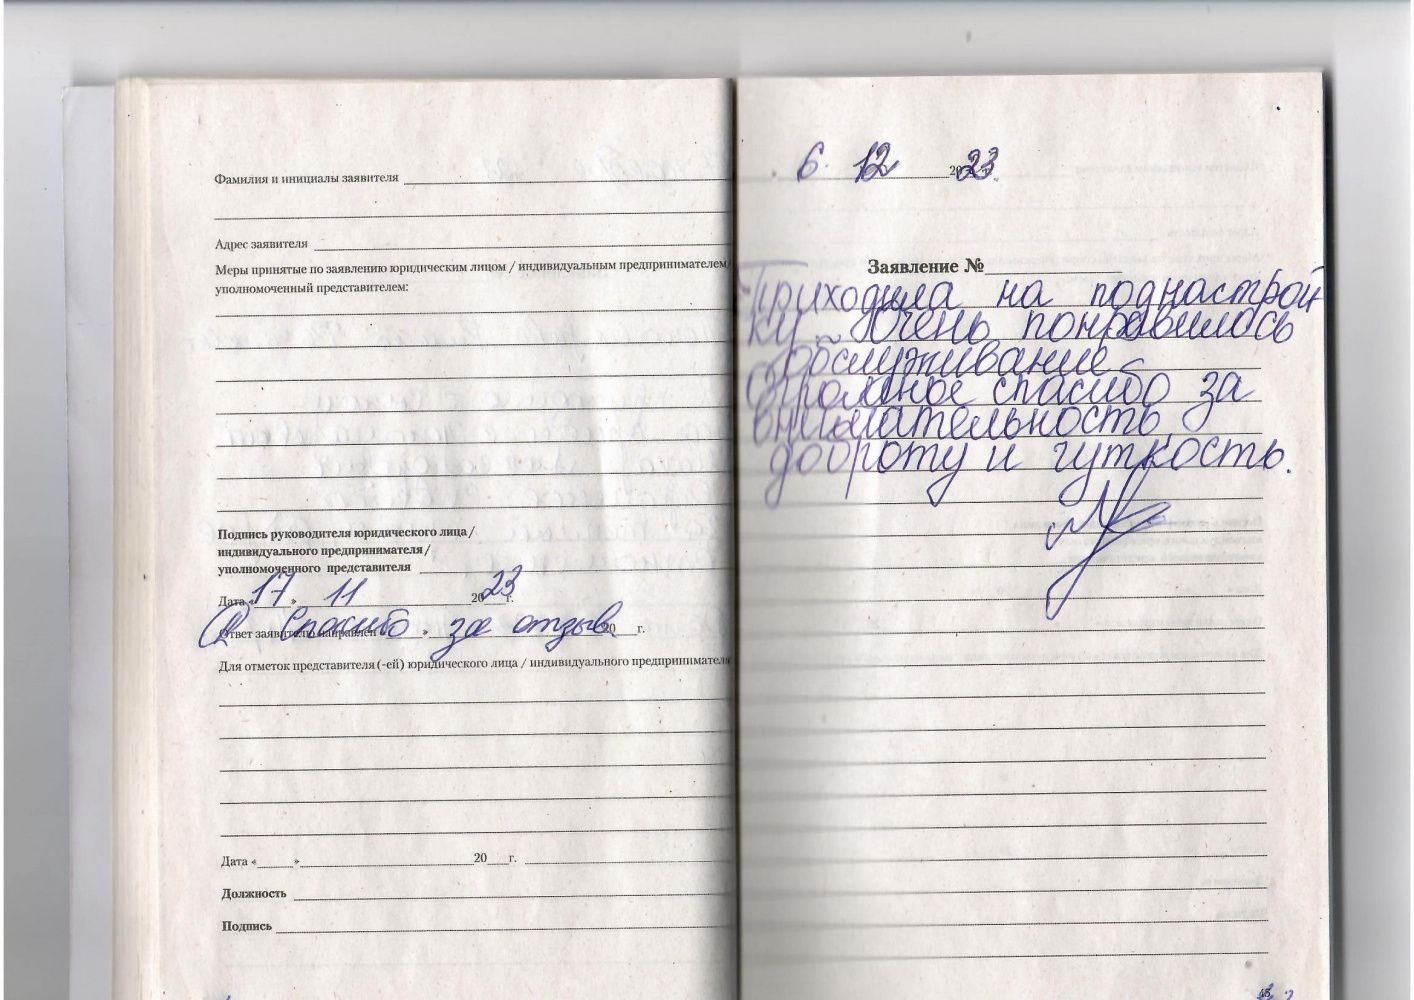 Фамилия и инициалы заявителя
Адрес заявителя
Меры принятые по заявлению юридическим лицом / индивидуальным предпринимателем/
уполномоченный представителем:
Подпись руководителя юридического лица/
индивидуального предпринимателя/
уполномоченного представителя
Дата « 17 » 11 2023 г.
Ответ заявителю направлен « » 20 г.
Спасибо за отзыв
Для отметок представителя (-ей) юридического лица / индивидуального предпринимателя
Дата « » 20 г.
Должность
Подпись
6. 12 2023.
Заявление №
Приходила на поднастрой
ку. Очень понравилось
обслуживание
Огромное спасибо за
внимательность,
доброту и чуткость.